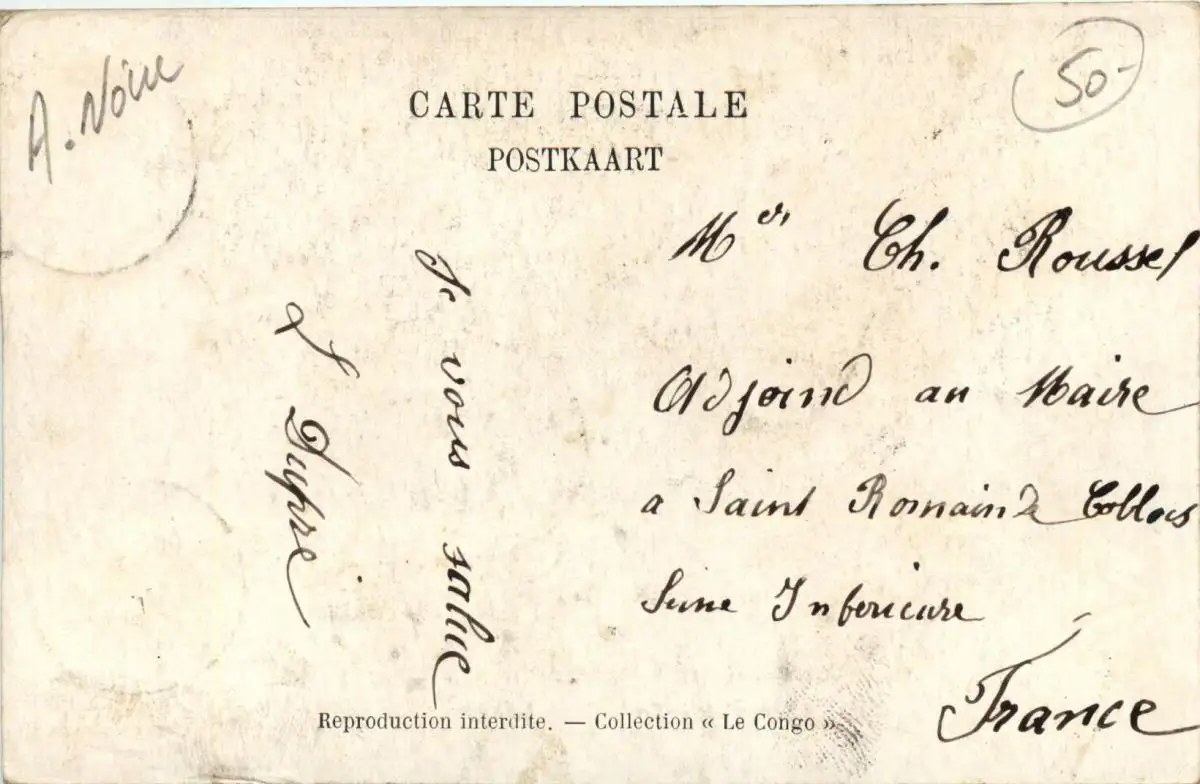 A. Noire
50-
CARTE POSTALE
POSTKAART
Mr Ch. Roussel
Adjoind au Maire
a Saint Romain de Colbos
Seine Inferieure
France
Je vous salue
L Dupre
Reproduction interdite. — Collection « Le Congo »